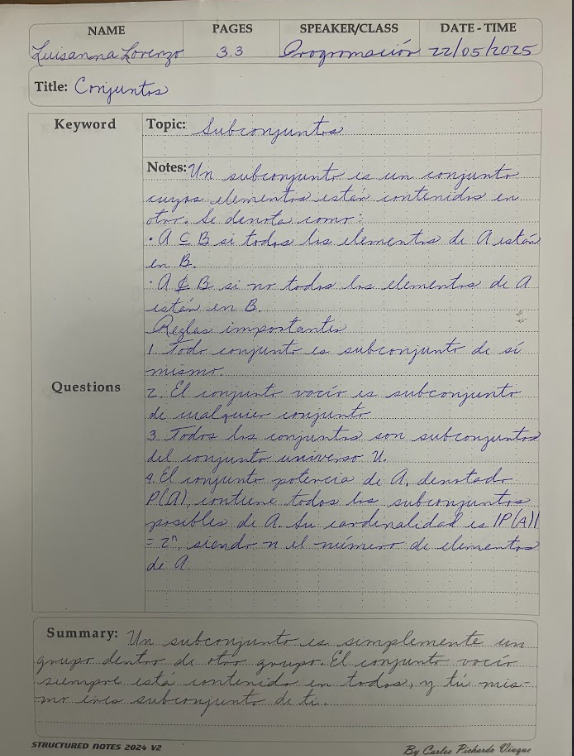 NAME PAGES SPEAKER/CLASS DATE - TIME
Luisanna Lorenzo 3.3 Programación 22/05/2025
Title: Conjuntos
Keyword
Topic: Subconjuntos
Notes: Un subconjunto es un conjunto
cuyos elementos están contenidos en
otro. Se denota como:
· A ⊆ B si todos los elementos de A están
en B.
· A ⊄ B si no todos los elementos de A
están en B.
Reglas importantes
1. Todo conjunto es subconjunto de sí
mismo.
Questions
2. El conjunto vacío es subconjunto
de cualquier conjunto
3. Todos los conjuntos son subconjuntos
del conjunto universo U.
4. El conjunto potencia de A, denotado
P(A), contiene todos los subconjuntos
posibles de A. Su cardinalidad es |P(A)|
= 2ⁿ, siendo n el número de elementos
de A
Summary: Un subconjunto es simplemente un
grupo dentro de otro grupo. El conjunto vacío
siempre está contenido en todos, y tú mis-
mo eres subconjunto de ti.
STRUCTURED NOTES 2024 V2
By Carlos Pichardo Viuque